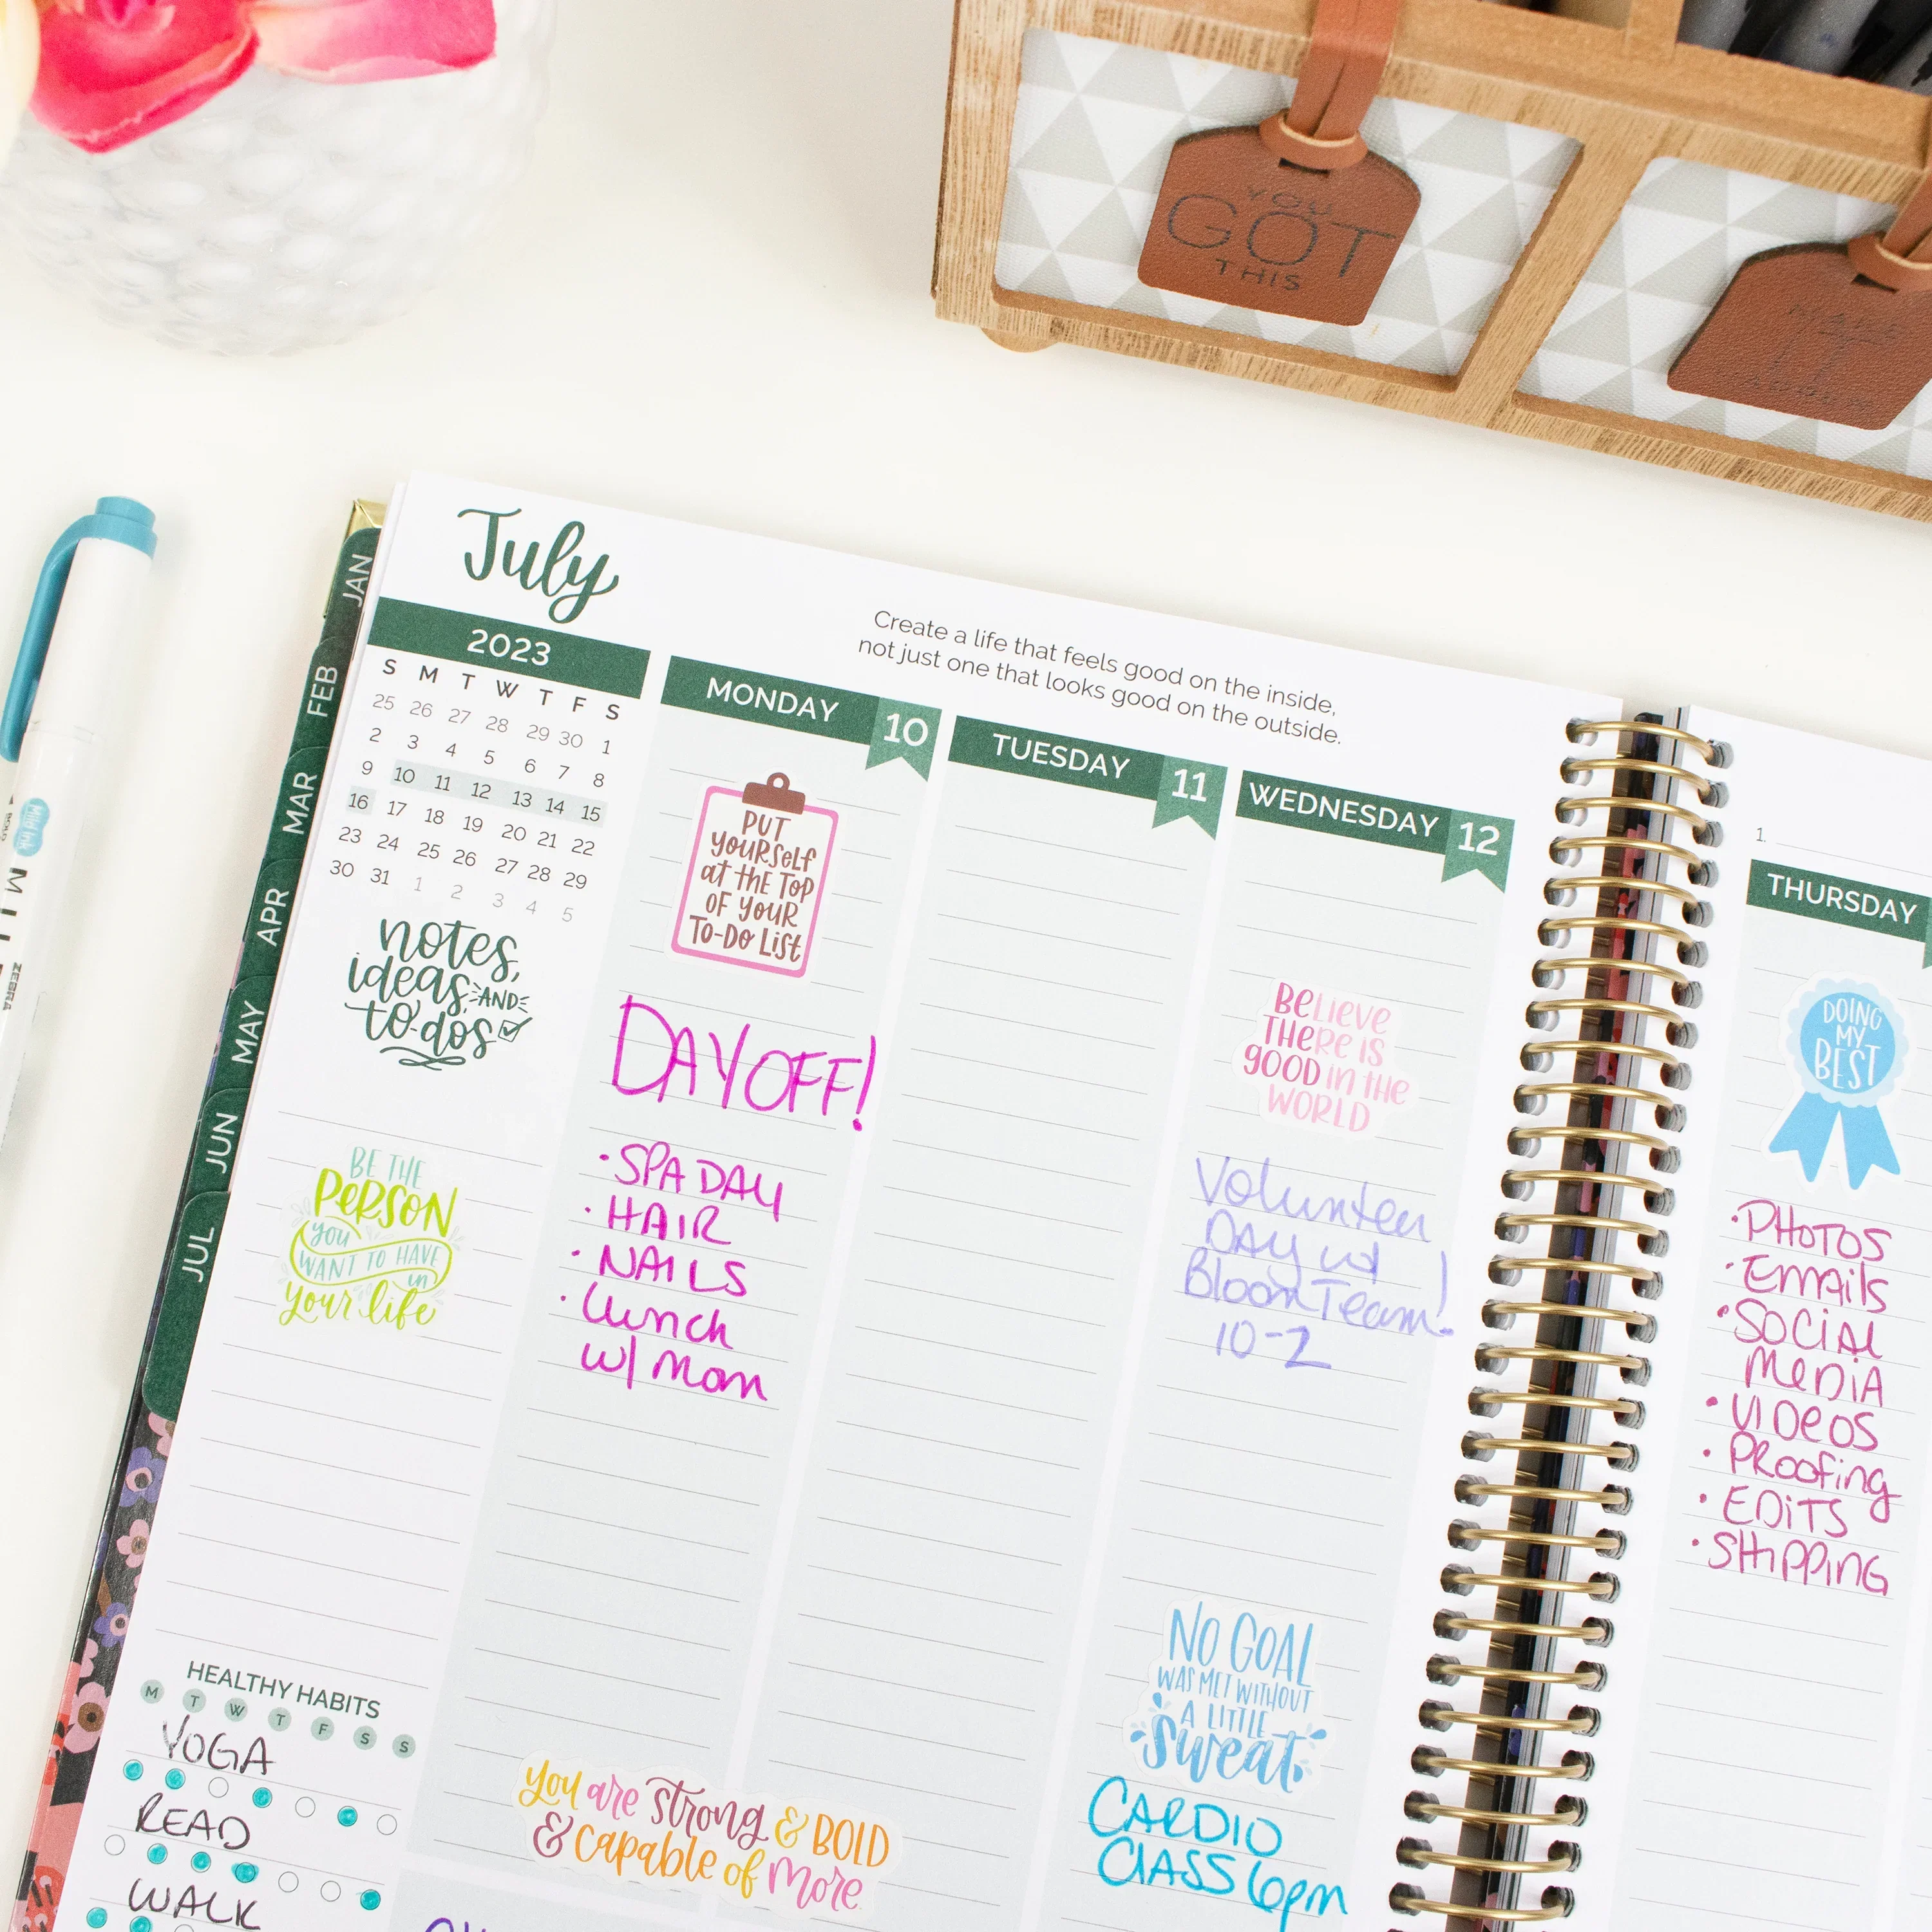 YOU
GOT
THIS
MAKE
IT
JAN
FEB
MAR
APR
MAY
JUN
JUL
Mild ink
ZEBRA
July
2023
S M T W T F S
25 26 27 28 29 30 1
2 3 4 5 6 7 8
9 10 11 12 13 14 15
16 17 18 19 20 21 22
23 24 25 26 27 28 29
30 31 1 2 3 4 5
notes,
ideas, AND
to-dos
BE THE
PERSON
you
WANT TO HAVE
in
your life
HEALTHY HABITS
M T W T F S S
YOGA
READ
WALK
Create a life that feels good on the inside,
not just one that looks good on the outside.
MONDAY 10
PUT
YOURSELF
at the TOP
OF YOUR
TO-DO LIST
DAY OFF!
• SPA DAY
• HAIR
• NAILS
• Lunch
w/ mom
you are strong & BOLD
& capable of more
TUESDAY 11
WEDNESDAY 12
BELIEVE
THERE IS
GOOD in the
WORLD
Volunteer
DAY w/
Bloom Team!
10-2
NO GOAL
WAS MET WITHOUT
A LITTLE
Sweat
CARDIO
CLASS 6pm
1.
THURSDAY
DOING
MY
BEST
• PHOTOS
• Emails
• SOCIAL
MEDIA
• VIDEOS
• PROOFING
• EDITS
• SHIPPING